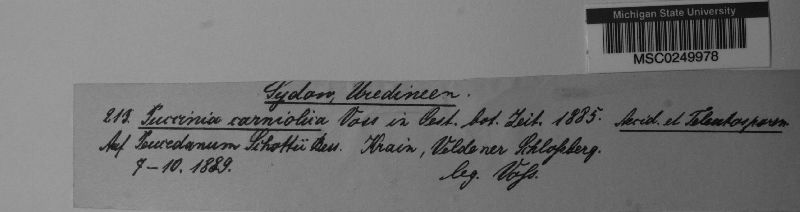 Michigan State University
MSC0249978
Sydow, Uredineen.
213. Puccinia carniolica Voss in Oest. bot. Zeit. 1885. Aecid. et Teleutosporen
Auf Peucedanum Schottii Bess. Krain, Veldener Schloßberg.
7-10. 1889. leg. Voss.